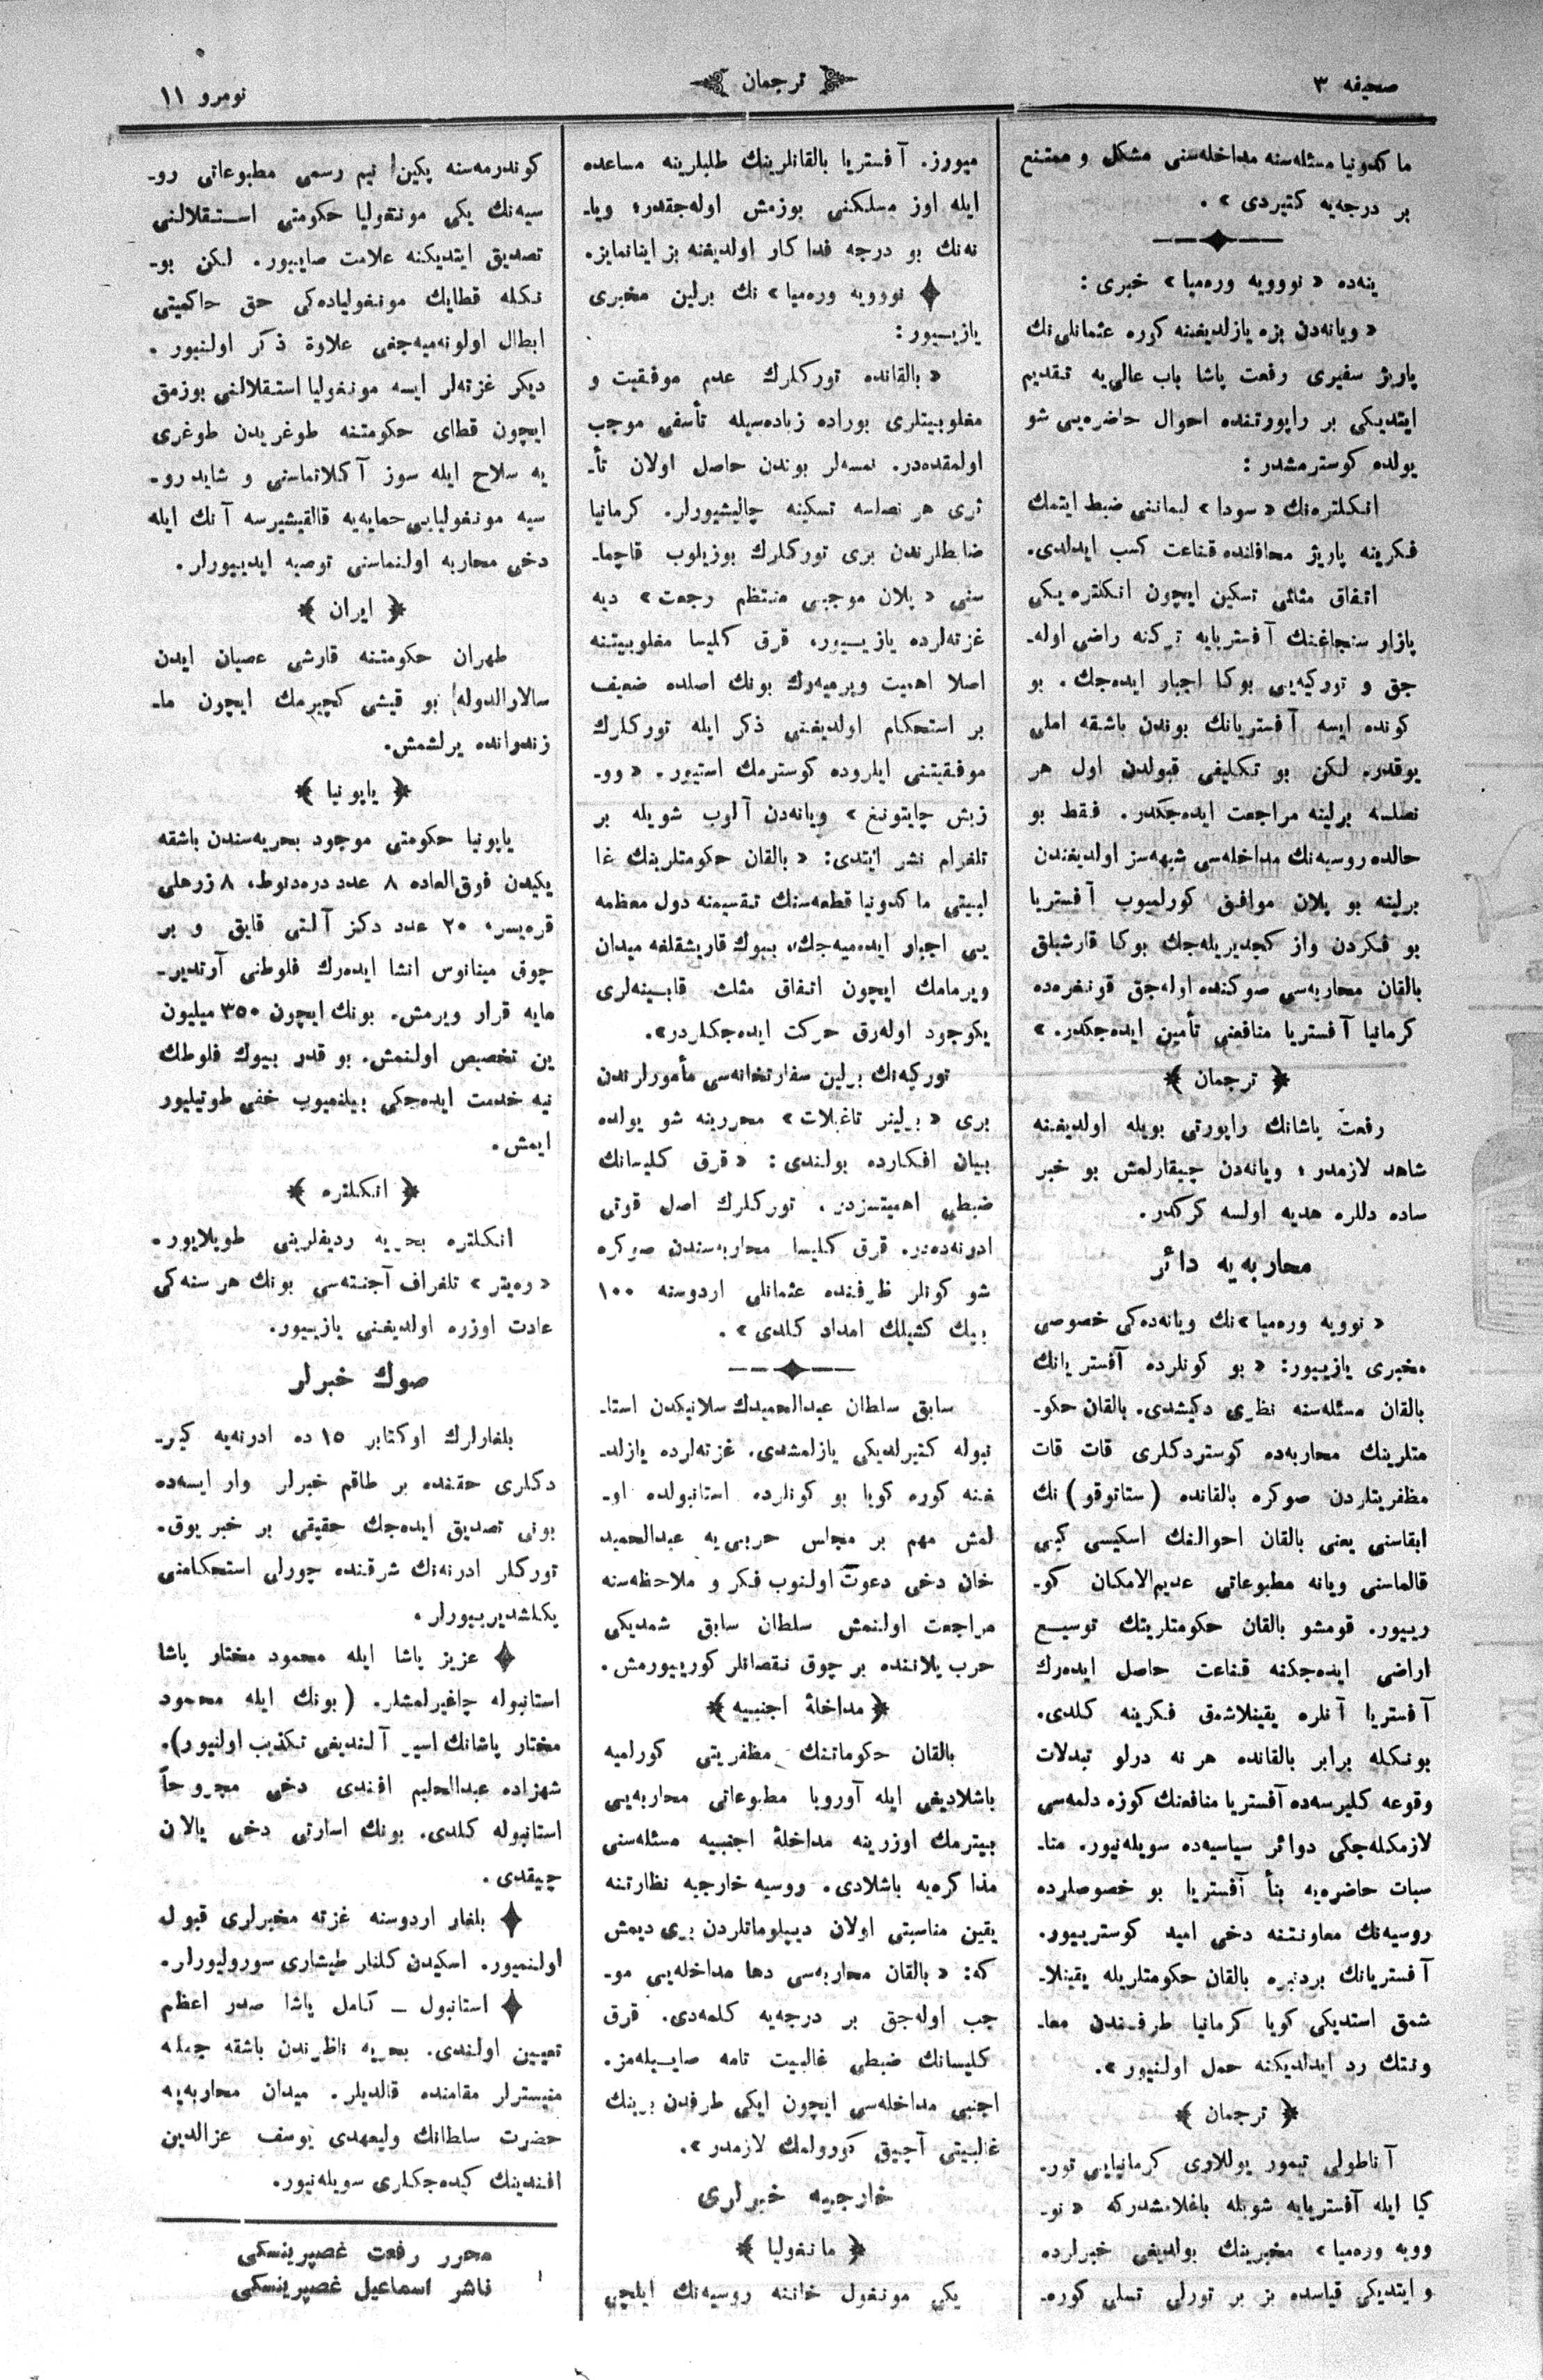 صحیفه ٣
ترجمان
نومرو ١١
ماکدونیا مسئله‌سنه مداخله‌سنی مشکل و ممتنع
بر درجه‌یه کتیردی» .
ینه‌ده «نووویه وره‌میا» خبری :
«ویانه‌دن بزه یازلدیغینه کوره عثمانلی‌نك
پاریژ سفیری رفعت پاشا باب عالی‌یه تقدیم
ایتدیکی بر راپورتنده احوال حاضره‌یی شو
یولده کوسترمشدر :
انکلتره‌نك «سودا» لیماننی ضبط ایتمك
فکرینه پاریژ محافلنده قناعت کسب ایدلدی.
اتفاق مثلثی تسکین ایچون انکلتره یکی
پازار سنجاغنك آفستریایه ترکنه راضی اوله‌ـ
جق و تورکیه‌یی بوکا اجبار ایده‌جك . بو
کونده ایسه آفستریانك بوندن باشقه املی
یوقدر. لکن بو تکلیفی قبولدن اول هر
نصلسه برلینه مراجعت ایده‌جکدر. فقط بو
حالده روسیه‌نك مداخله‌سی شبهه‌سز اولدیغندن
برلینه بو پلان موافق کورلمیوب آفستریا
بو فکردن واز کچدیریله‌جك بوکا قارشیلق
بالقان محاربه‌سی صوکنده اوله‌جق قونغره‌ده
کرمانیا آفستریا منافعنی تأمین ایده‌جکدر. »
﴿ ترجمان ﴾
رفعت پاشانك راپورتی بویله اولدیغینه
شاهد لازمدر ؛ ویانه‌دن چیقارلمش بو خبر
ساده دللره هدیه اولسه کرکدر.
محاربه‌یه دائر
«نوویه وره‌میا»نك ویانه‌ده‌کی خصوصی
مخبری یازییور: «بو کونلرده آفستریانك
بالقان مسئله‌سنه نظری دکیشدی. بالقان حکو-
متلرینك محاربه‌ده کوستردکلری قات قات
مظفریتلردن صوکره بالقانده (ستاتوقو) نك
ابقاسنی یعنی بالقان احوالنك اسکیسی کبی
قالماسنی ویانه مطبوعاتی عدیم‌الامکان کو-
رییور. قومشو بالقان حکومتلرینك توسیـع
اراضی ایده‌جکنه قناعت حاصل ایده‌رك
آفستریا آنلره یقینلاشمق فکرینه کلدی.
بونکله برابر بالقانده هر نه درلو تبدلات
وقوعه کلیرسه‌ده آفستریا منافعنك کوزه دلمه‌سی
لازمکله‌جکی دوائر سیاسیه‌ده سویله‌نیور. منا-
سبات حاضره‌یه بنأ آفستریا بو خصوصلرده
روسیه‌نك معاونتنه دخی امید کوسترییور.
آفستریانك بردنبره بالقان حکومتلریله یقینلا-
شمق استدیکی کویا کرمانیا طرفندن معا-
ونتك رد ایدلدیکنه حمل اولنیور ».
﴿ ترجمان ﴾
آناطولی تیمور یوللاری کرمانیایی تور-
کیا ایله آفستریایه شویله باغلامشدرکه «نو-
وویه وره‌میا» مخبرینك بولدیغی خبرلرده
و ایتدیکی قیاسده بز بر تورلی تسلی کوره-
میورز. آفستریا بالقانلرینك طلبلرینه مساعده
ایله اوز مسلکنی بوزمش اوله‌جقدر؛ ویا-
نه‌نك بو درجه فداکار اولدیغنه بز اینانمایز.
نووویه وره‌میا» نك برلین مخبری
یازییور :
«بالقانده تورکلرك عدم موفقیت و
مغلوبیتلری بوراده زیاده‌سیله تأسفی موجب
اولمقده‌در. نمسه‌لر بوندن حاصل اولان تأ-
ثری هر نصلسه تسکینه چالیشیورلر. کرمانیا
ضابطلرندن بری تورکلرك بوزیلوب قاچما-
سنی «پلان موجبی منتظم رجعت» دیه
غزته‌لرده یازییور. قرق کلیسا مغلوبیتنه
اصلا اهمیت ویرمیه‌رك بونك اصلده ضعیف
بر استحکام اولدیغنی ذکر ایله تورکلرك
موفقیتنی ایلروده کوسترمك استیور. «وو-
زیش چایتونغ» ویانه‌دن آلوب شویله بر
تلغرام نشر ایتدی: «بالقان حکومتلرینك غا
لبیتی ماکدونیا قطعه‌سنك تقسیمنه دول معظمه
یی اجبار ایده‌میه‌جك، بیوك قاریشقلغه میدان
ویرمامك ایچون اتفاق مثلث قابینه‌لری
یکوجود اوله‌رق حرکت ایده‌جکلردر».
تورکیه‌نك برلین سفارتخانه‌سی مأمورلرندن
بری «برلینر تاغبلات» محررینه شو یولده
بیان افکارده بولندی : «قرق کلیسانك
ضبطی اهمیتسزدر. تورکلرك اصل قوتی
ادرنه‌ده‌در. قرق کلیسا محاربه‌سندن صوکره
شو کونلر ظرفنده عثمانلی اردوسنه ١٠٠
بیك کشیلك امداد کلدی» .
سابق سلطان عبدالحمیدك سلانیکدن استا-
نبوله کتیرلدیکی یازلمشدی. غزته‌لرده یازلد-
غنه کوره کویا بو کونلرده استانبولده او-
لمش مهم بر مجلس حربی‌یه عبدالحمید
خان دخی دعوت اولنوب فکر و ملاحظه‌سنه
مراجعت اولنمش سلطان سابق شمدیکی
حرب پلاننده بر چوق نقصانلر کورییورمش.
﴿ مداخلهٔ اجنبیه ﴾
بالقان حکوماتنك مظفریتی کورلمیه
باشلادیغی ایله آوروپا مطبوعاتی محاربه‌یی
بیترمك اوزرینه مداخلهٔ اجنبیه مسئله‌سنی
مذاکره‌یه باشلادی. روسیه خارجیه نظارتنه
یقین مناسبتی اولان دیپلوماتلردن بری دیمش
که: «بالقان محاربه‌سی دها مداخله‌یی مو-
جب اوله‌جق بر درجه‌یه کلمه‌دی. قرق
کلیسانك ضبطی غالبیت تامه صاییله‌مز.
اجنبی مداخله‌سی ایچون ایکی طرفدن برینك
غالبیتی آچیق کورولمك لازمدر».
خارجیه خبرلری
﴿ مانغولیا ﴾
یکی مونغول خاننه روسیه‌نك ایلچی
کوندرمه‌سنه پکین نیم رسمی مطبوعاتی رو-
سیه‌نك یکی مونغولیا حکومتی استقلالنی
تصدیق ایتدیکنه علامت صاییور. لکن بو-
نکله قطایك مونغولیاده‌کی حق حاکمیتی
ابطال اولونه‌میه‌جغی علاوة ذکر اولنیور .
دیکر غزته‌لر ایسه مونغولیا استقلالنی بوزمق
ایچون قطای حکومتنه طوغریدن طوغری
یه سلاح ایله سوز آکلاتماسنی و شاید رو-
سیه مونغولیایی حمایه‌یه قالقیشیرسه آنك ایله
دخی محاربه اولنماسنی توصیه ایدییورلر.
﴿ ایران ﴾
طهران حکومتنه قارشی عصیان ایدن
سالارالدوله بو قیشی کچیرمك ایچون ما-
زندرانده یرلشمش.
﴿ یاپونیا ﴾
یاپونیا حکومتی موجود بحریه‌سندن باشقه
یکیدن فوق‌العاده ٨ عدد دره‌دنوط، ٨ زرهلی
قره‌یسر، ٢٠ عدد دکز آلتی قایق و بر
چوق مینانوس انشا ایده‌رك فلوطنی آرتدیر-
مایه قرار ویرمش. بونك ایچون ٣٥٠ میلیون
ین تخصیص اولنمش. بو قدر بیوك فلوطك
نیه خدمت ایده‌جکی بیلنمیوب خفی طوتیلیور
ایمش.
﴿ انکلتره ﴾
انکلتره بحریه ردیفلرینی طوپلایور.
«ره‌یتر» تلغراف آجنته‌سی بونك هر سنه‌کی
عادت اوزره اولدیغنی یازییور.
صوك خبرلر
بلغارلرك اوکتابر ١٥ ده ادرنه‌یه کیر-
دکلری حقنده بر طاقم خبرلر وار ایسه‌ده
بونی تصدیق ایده‌جك حقیقی بر خبر یوق.
تورکلر ادرنه‌نك شرقنده چورلی استحکامنی
یکلشدیرییورلر.
عزیز پاشا ایله محمود مختار پاشا
استانبوله چاغیرلمشلر. (بونك ایله محمود
مختار پاشانك اسیر آلندیغی تکذیب اولنیور).
شهزاده عبدالحلیم افندی دخی مجروحاً
استانبوله کلدی. بونك اسارتی دخی یالان
چیقدی.
بلغار اردوسنه غزته مخبرلری قبول
اولنمیور. اسکیدن کلنلر طیشاری سورولیورلر.
استانبول — کامل پاشا صدر اعظم
تعیین اولندی. بحریه ناظرندن باشقه جمله
منیسترلر مقامنده قالدیلر. میدان محاربه‌یه
حضرت سلطانك ولیعهدی یوسف عزالدین
افندینك کیده‌جکلری سویله‌نیور.
محرر رفعت غصپرینسکی
ناشر اسماعیل غصپرینسکی